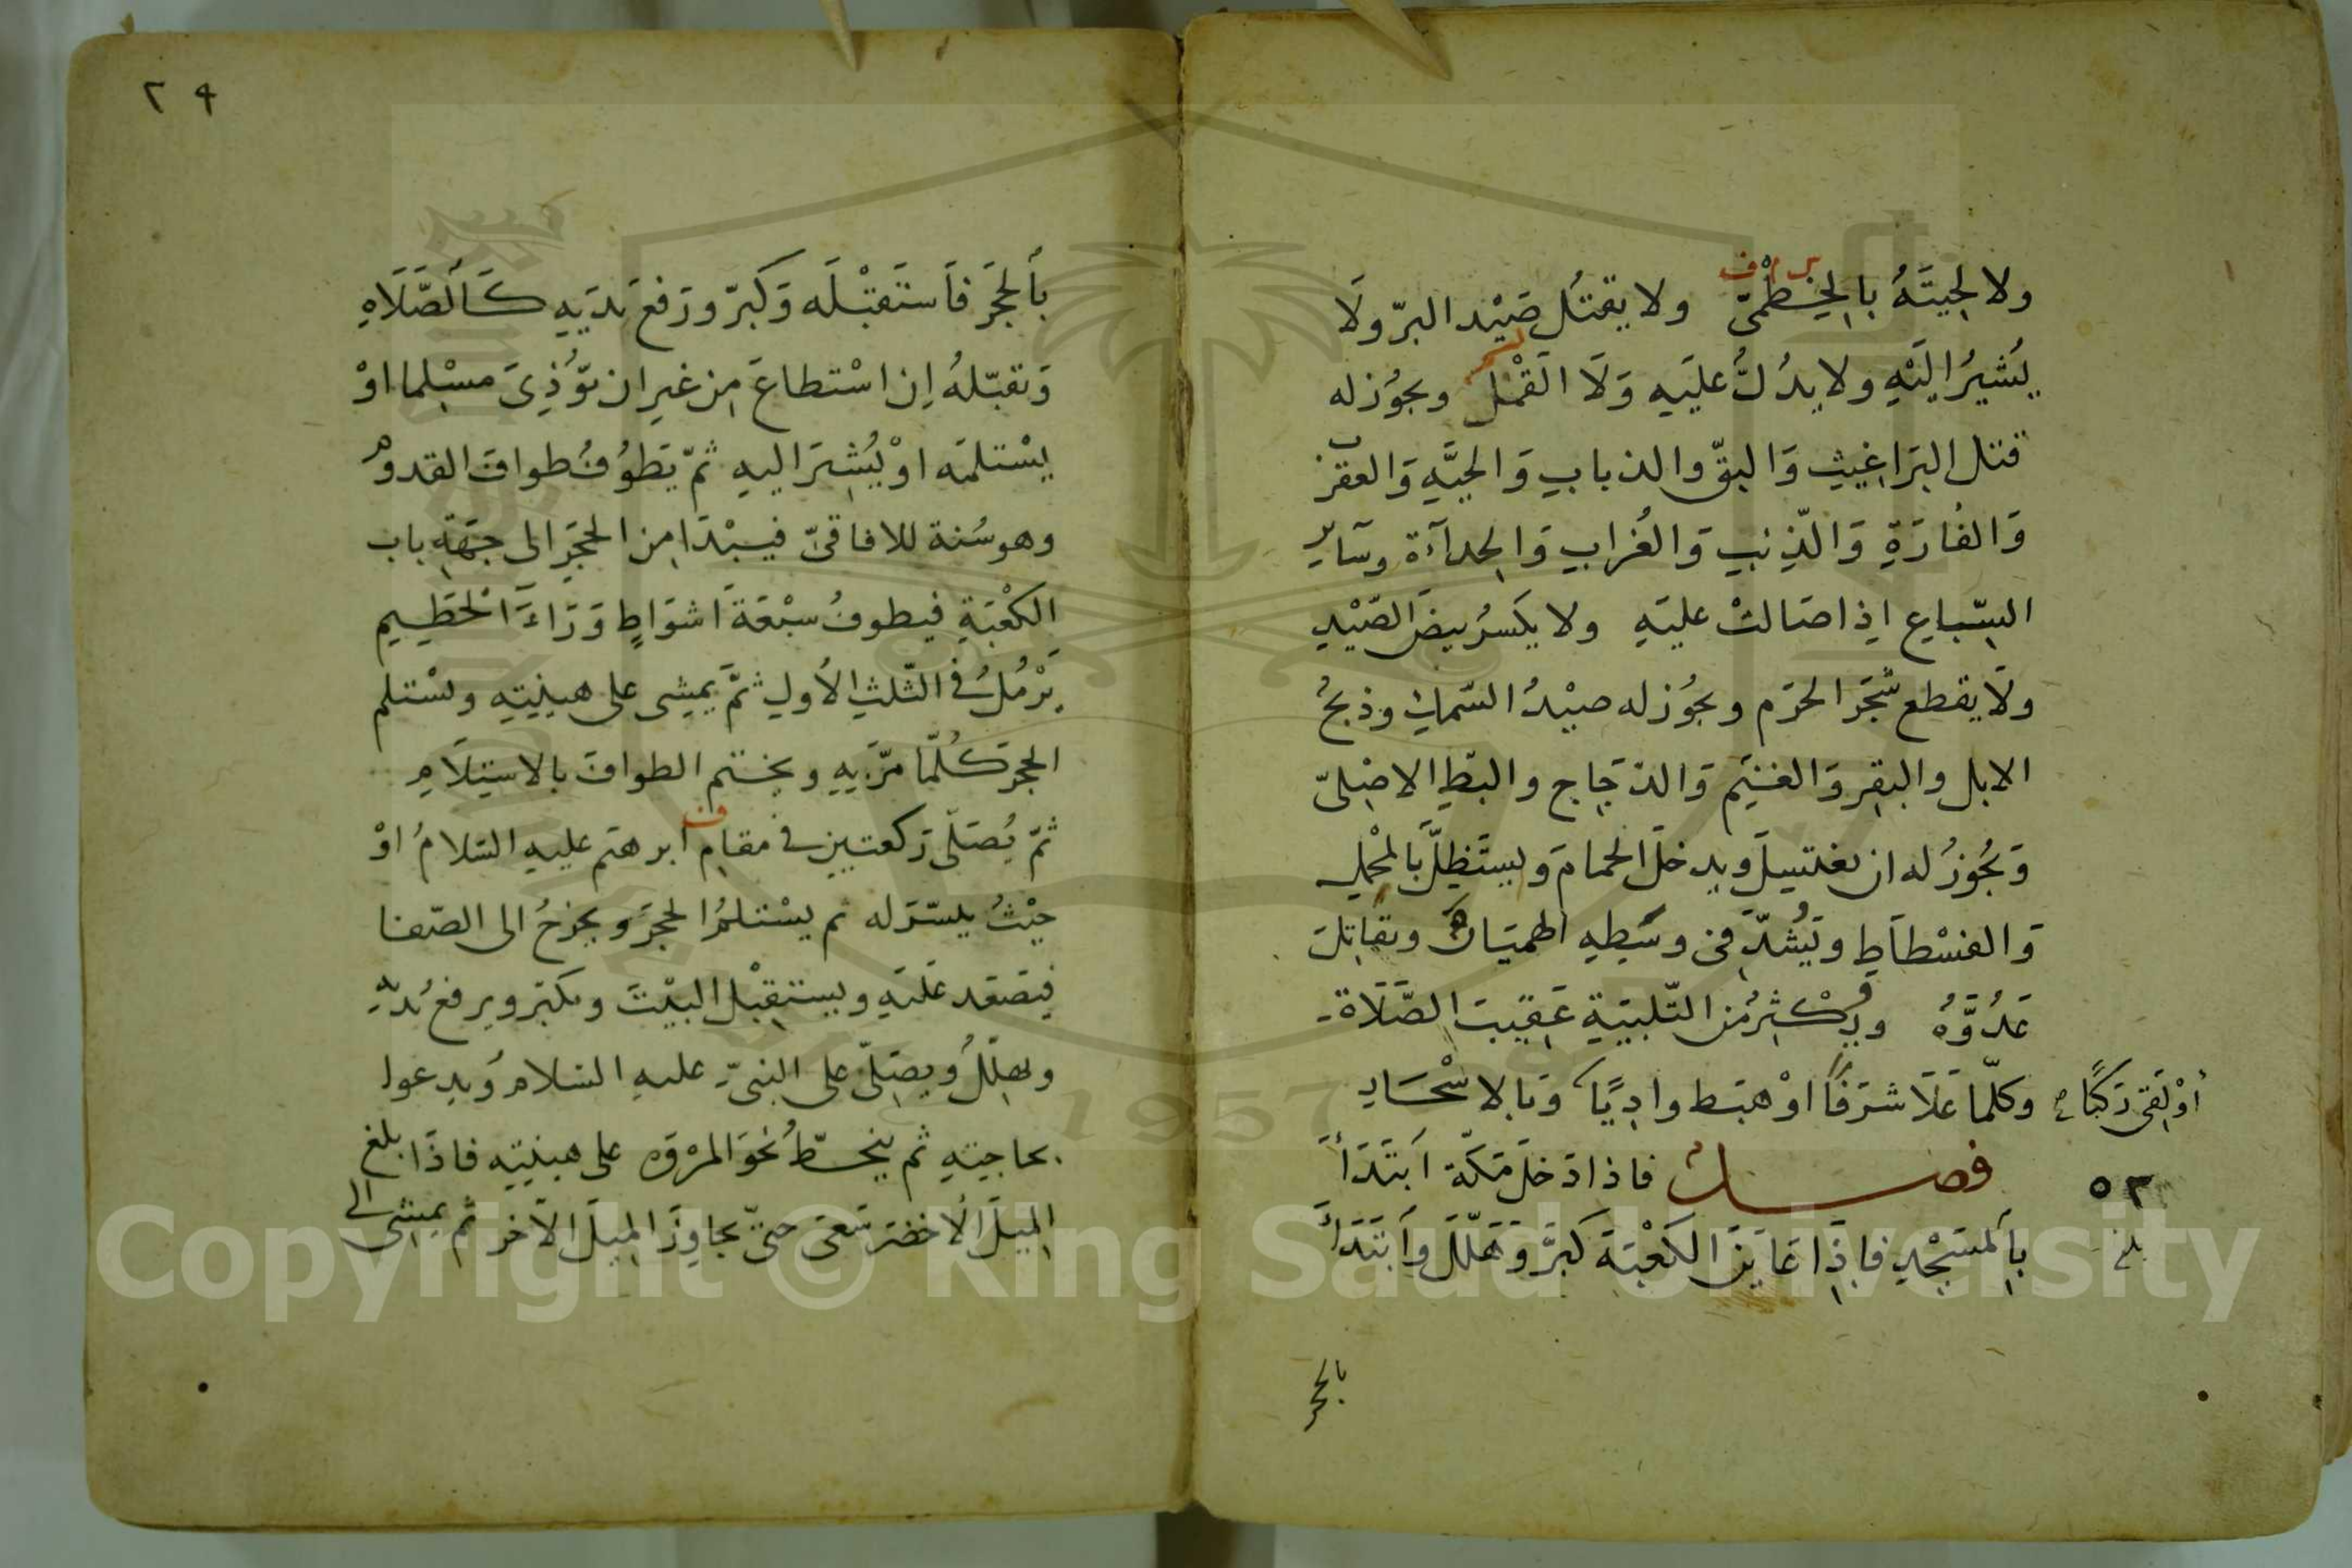 ولا لحيتَهُ بالخِطميّ ولا يقتُل صَيْد البرّ ولَا
يُشيرُ اليْهِ ولا يدُلُّ عليَهِ وَلَا القَمْل ويجوُز له
قتل البَراغيثِ وَالبقّ والذبابِ وَالحيَّهِ وَالعقرب
وَالفُارَةِ وَالذِئبِ وَالغُرابِ وَالحِدآءَة وسَآيرِ
السِّباعِ اِذا صَالتْ عليَهِ ولا يكسرُ بيضَ الصَيْدِ
ولَا يقطع شَجَرَ الحَرَم ويجُوز له صيْدُ السَّمكِ وذبحُ
الابل والبقِر وَالغنَمِ وَالدَجَاج والبَطِ الاهْليّ
وَيجُوزُ له ان يغتسِلَ ويدخلَ الحمامَ ويستَظِلَّ بَالمحْمِل
وَالفسْطاَطِ ويَشُدّ في وسَطِهِ الهميَانَ ويقاتِلَ
عَدُوَّهُ ويُكْثِرُ من التّلبيَةِ عَقيبَ الصَّلَاة
وكلّما عَلَا شرَفًا اوْ هبَط واديًا وَبالاسْحَارِ
اوْ لَقى رَكبًا
فصل فاذا دَخلَ مَكّة اَبتَدَأ
بِاَلمَسَجْدِ فاِذَا عَايَنَ الكعْبَةَ كبَّرَ وَهَلّلَ وَاَبتَدَأَ
٥٢
بلغ
بالحجر
٢٩
بأَلحَجَر فاَستَقبَلَه وَكَبّر ورَفعَ يَديَهِ كَاَلصَّلَاهِ
وَيقبّلهُ اِن اسْتطاعَ مِن غيرِ ان يؤُذِىَ مسْلما اوْ
يسْتلمَه اوْ يُشيَر اليهِ ثمّ يَطوُفُ طوافَ القدوم
وهو سُنة للافاقىّ فيبْدَا مِن الحجَرِ الى جهَةِ باب
الكعْبَةِ فيطوفُ سبْعَةَ اَشوَاطٍ وَرَاءَ الحَطِيمِ
يَرْمُلُ فى الثلثِ الأولِ ثمَّ يمشِى على هينِيَتِهِ ويسْتلم
الحجَر كُلّما مرَّ بِهِ ويختم الطوافَ بالاستِلَامِ
ثمّ يُصَلّى رَكعتين فى مقامِ ابرهيَم عليهِ السّلامُ اوْ
حيْثُ يلسّرَ له ثم يسْتلمُ الحجَرَ ويخرجُ الى الصّفا
فيَصَعَد عَليَهِ ويستقِبْل البيْتَ ويكبّر ويرفعُ يدَيْهِ
ويهلِّلُ ويصَلّى على النبىّ عليهِ السَلام وَيدعوا
بحاجتهِ ثم ينحطُّ نحَوَ المرْوَه على هينِيَتِهِ فاذَا بلغ
الميَلَ الأخضَرَ سَعَى حتىّ يجاوِزَ الميَلَ الآخر ثم يمشِى الى